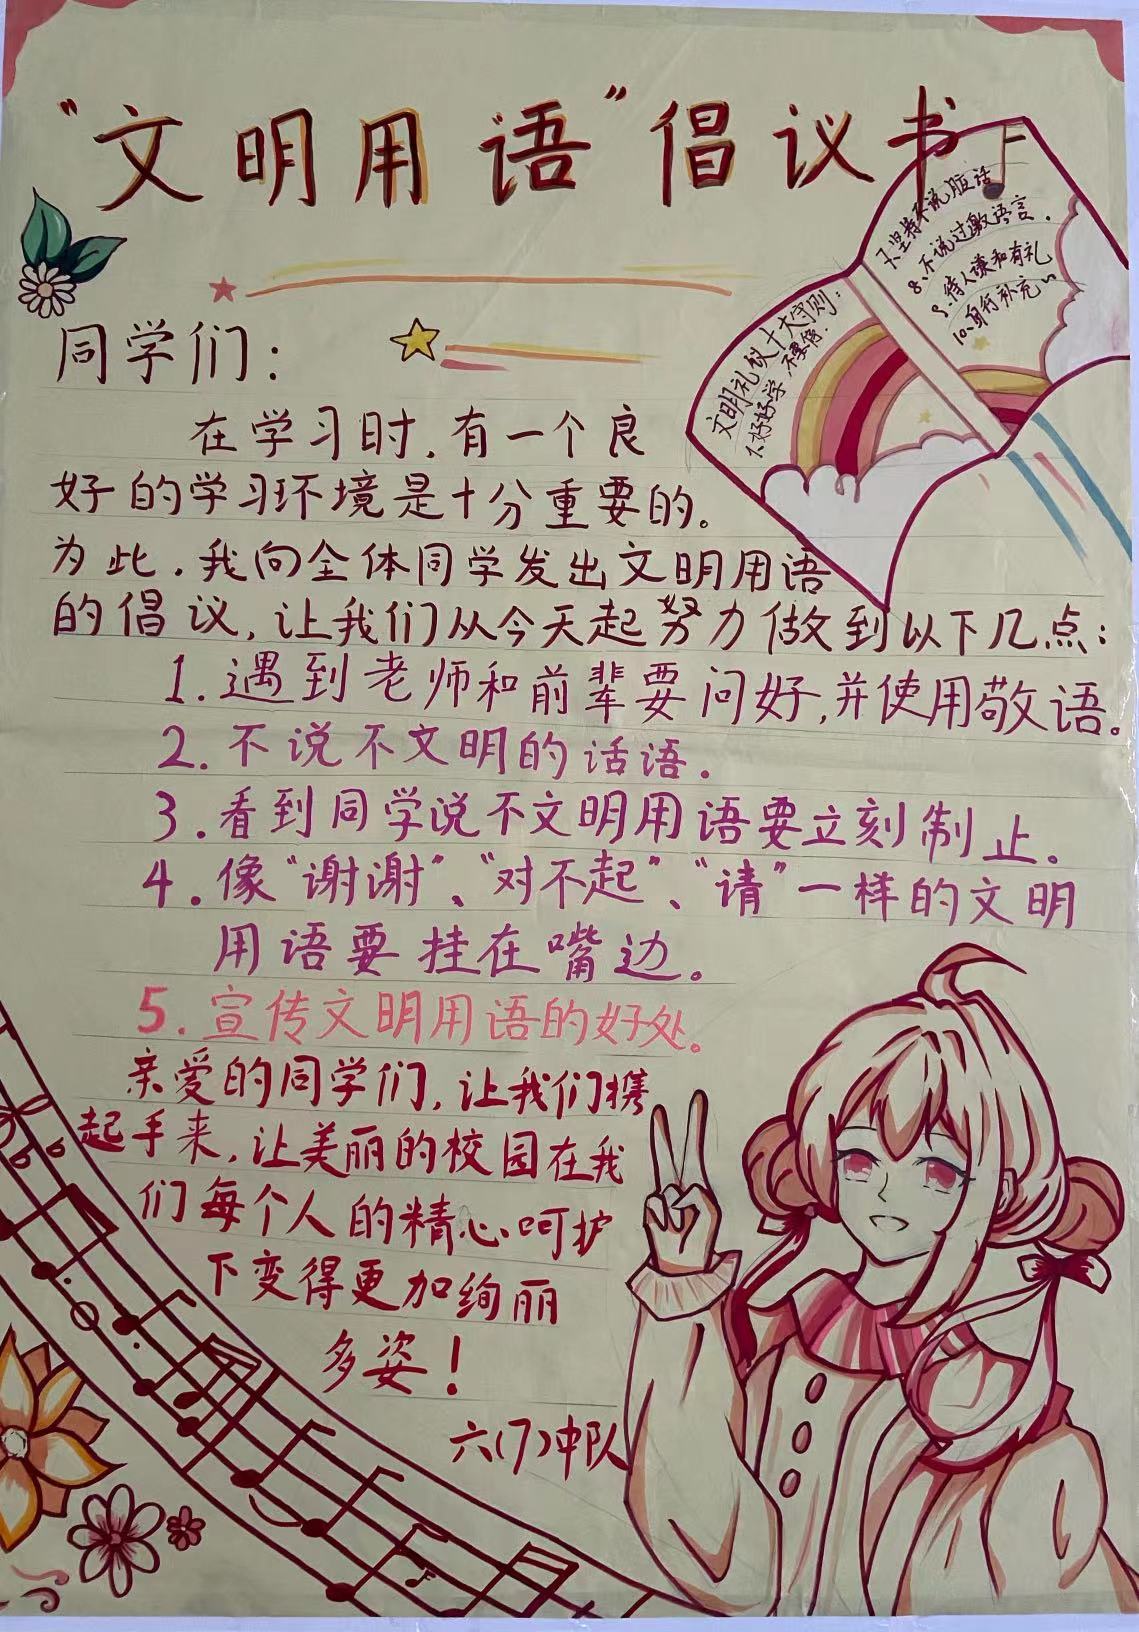 “文明用语”倡议书
同学们：
在学习时，有一个良
好的学习环境是十分重要的。
为此，我向全体同学发出文明用语
的倡议，让我们从今天起努力做到以下几点：
1.遇到老师和前辈要问好，并使用敬语。
2.不说不文明的话语.
3.看到同学说不文明用语要立刻制止.
4.像“谢谢”、“对不起”、“请”一样的文明
用语要挂在嘴边。
5.宣传文明用语的好处。
亲爱的同学们，让我们携
起手来，让美丽的校园在我
们每个人的精心呵护
下变得更加绚丽
多姿！
六(7)中队
文明礼仪十大守则：
1、好好学，不要停.
7、坚持不说脏话
8、不说过激语言.
9、待人谦和有礼
10、自行补充